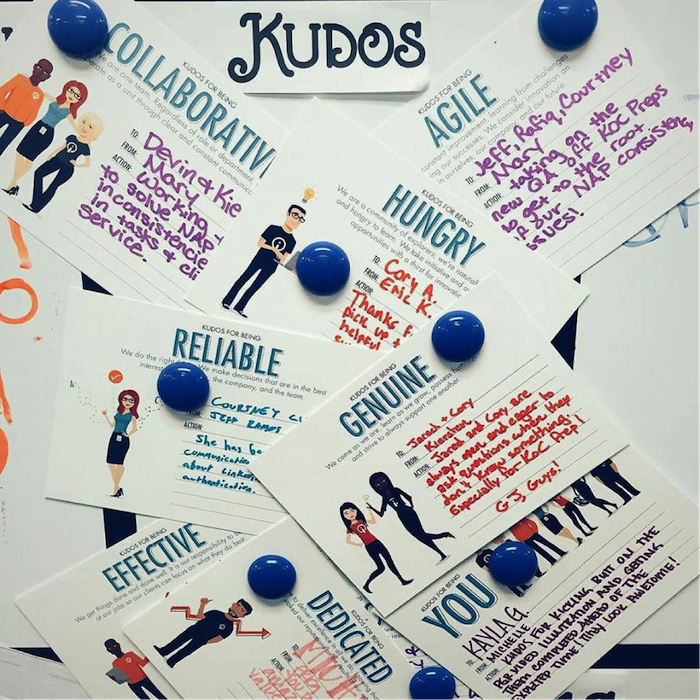 KUDOS
KUDOS FOR BEING
COLLABORATIV
We are one team. Regardless of role or department
erate as a unit through clear and constant communic
TO: Devin & Kie
FROM: Mary
ACTION: Working
to solve NAP
inconsistencie
in tasks & cli
service.
KUDOS FOR BEING
AGILE
constant improvement, learning from challenges
ing our successes. We consider innovation an
in ourselves, our company and our future.
TO: Jeff, Rafiq, Courtney
FROM: Mary
ACTION: taking on the
new QA off KOC Preps
to get to the root
our NAP consistency
issues!
KUDOS FOR BEING
HUNGRY
We are a community of explorers, we're natural
and hungry to learn. We take initiative and
opportunities with a thirst for innovatio
TO: Cory A.
FROM: Eric K.
ACTION:
Thanks f
pick up
helpful
KUDOS FOR BEING
RELIABLE
We do the right We make decisions that are in the best
interest the company, and the team.
COURTNEY CL
JEFF
ACTION:
She has be
communicatio
about LinkedIn
authentication.
KUDOS FOR BEING
GENUINE
We come as we are, learn as we grow, possess humility
and strive to always support one another.
TO: Jarod + Cory
FROM: Kiersten
ACTION: Jarod and Cory are
always open and eager to
ask questions when they
don't know something.
Especially for KOC Prep!
GJ, Guys!
KUDOS FOR BEING
EFFECTIVE
We get things done and done well. It is our responsibility to
at our jobs so our clients can focus on what they do best.
KUDOS FOR BEING
DEDICATED
to deliver excellence in all we do
TO:
FROM:
ACTION:
KUDOS FOR BEING
YOU
TO: KAYLA G
FROM: MICHELLE
ACTION: KUDOS FOR KICKING BUTT ON THE
BRANDED ILLUSTRATION AND GETTING
THEM COMPLETED AHEAD OF THE
LIMITED TIME! THEY LOOK AWESOME!